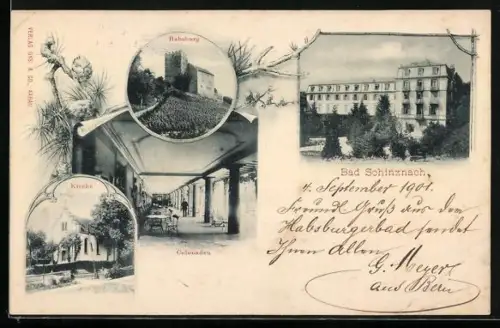 Habsburg
Bad Schinznach.
Kirche
Colonnaden.
4. September 1901.
Freundl Gruß aus dem
Habsburgerbad sendet
Ihnen Allen
G. Meyer
aus Bern